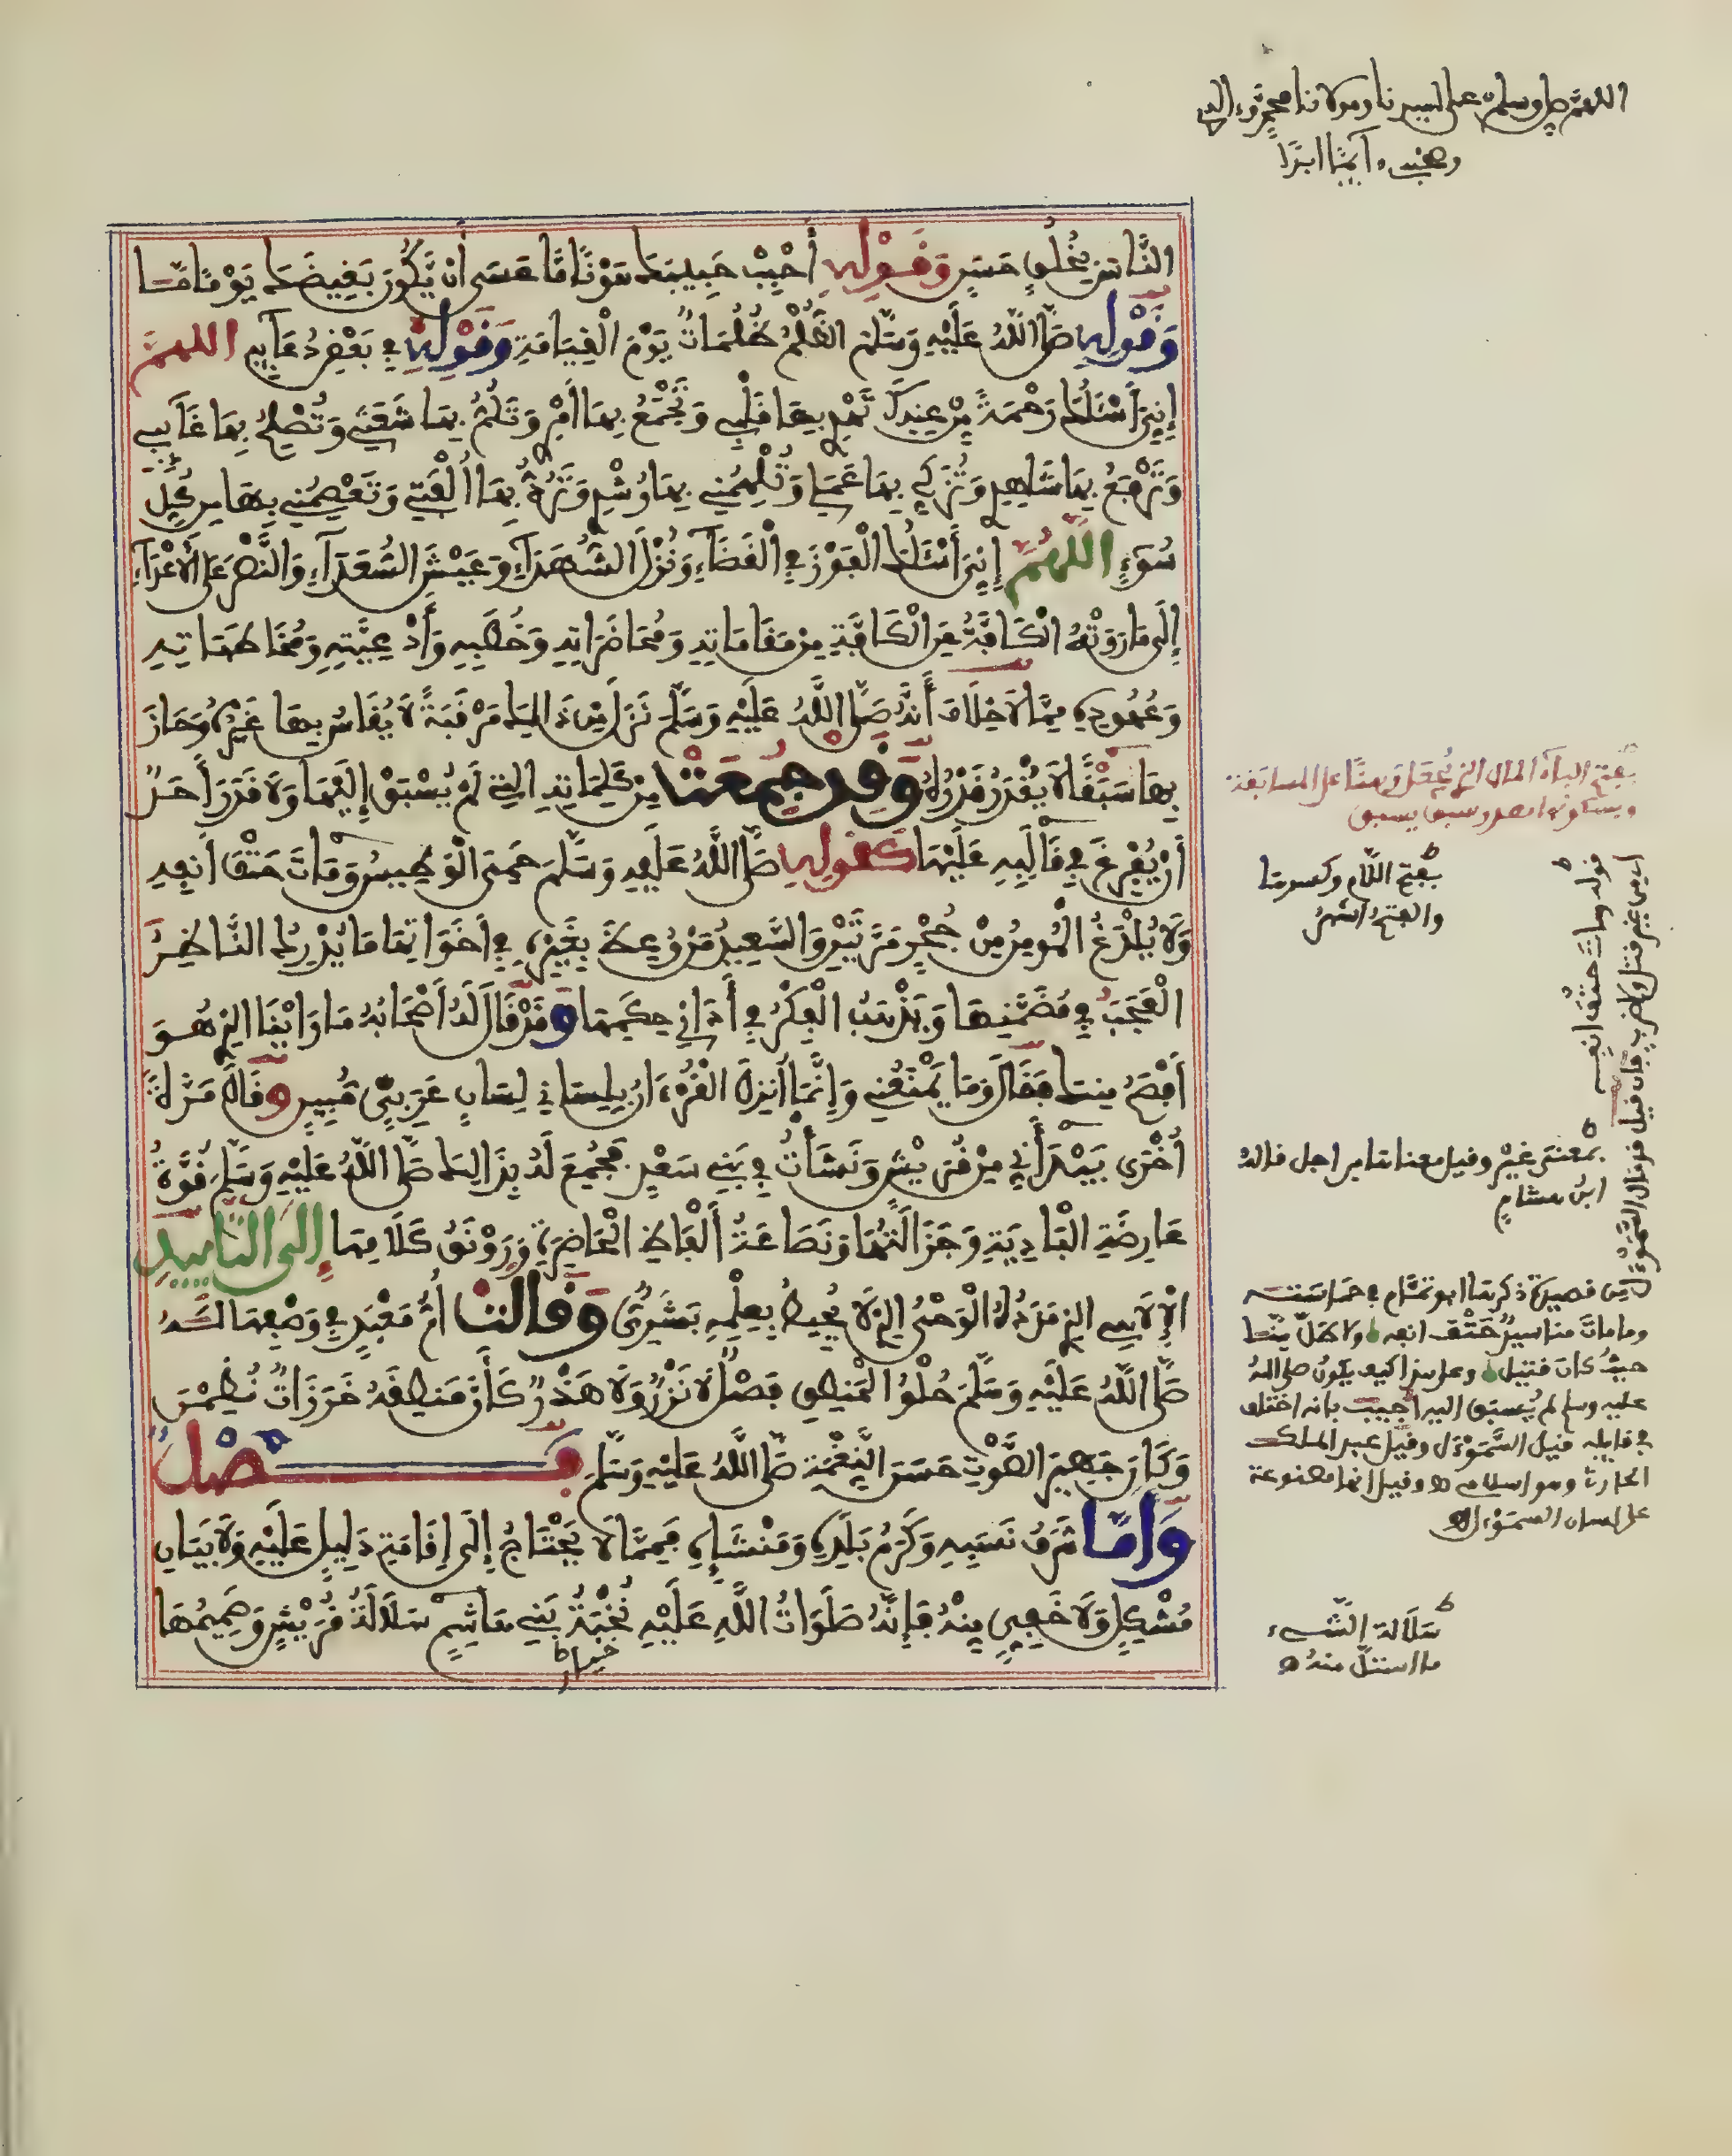 اللهم صل وسلم على سيدنا ومولانا محمد وءاله
وصحبه دآئما ابدا
النَّاسَ بِخُلُقٍ حَسَنٍ وَقَوْلِهِ أَحْبِبْ حَبِيبَكَ هَوْنًا مَّا عَسَى أَنْ يَّكُونَ بَغِيضَكَ يَوْمًا مَّا
وَقَوْلِهِ صَلَّى اللَّهُ عَلَيْهِ وَسَلَّمَ الظُّلْمُ ظُلُمَاتٌ يَوْمَ الْقِيَامَةِ وَقَوْلِهِ فِي بَعْضِ دُعَآئِهِ اللهمَّ
إِنِّيَ أَسْئَلُكَ رَحْمَةً مِّنْ عِندِكَ تَهْدِي بِهَا قَلْبِي وَتَجْمَعُ بِهَا أَمْرِي وَتَلُمُّ بِهَا شَعَثِي وَتُصْلِحُ بِهَا غَآئِبِي
وَتَرْفَعُ بِهَا شَاهِدِي وَتُزَكِّي بِهَا عَمَلِي وَتُلْهِمُنِي بِهَا رُشْدِي وَتَرُدُّ بِهَا أُلْفَتِي وَتَعْصِمُنِي بِهَا مِن كُلِّ
سُوٓءٍ اللَّهُمَّ إِنِّيَ أَسْئَلُكَ الْفَوْزَ فِي الْقَضَآءِ وَنُزُلَ الشُّهَدَآءِ وَعَيْشَ السُّعَدَآءِ وَالنَّصْرَ عَلَى الْأَعْدَآءِ
إِلَى مَا رَوَتْهُ الْكَآفَّةُ عَنِ الْكَآفَّةِ مِن مَقَامَاتِهِ وَمُحَاضَرَاتِهِ وَخُطَبِهِ وَأَدْعِيَتِهِ وَمُخَاطَبَاتِهِ
وَعُهُودِهِ مِمَّا لَا خِلَافَ أَنَّهُ صَلَّى اللَّهُ عَلَيْهِ وَسَلَّمَ نَزَلَ مِن ذَالِكَ مَرْقَبَةً لَا يُقَاسُ بِهَا غَيْرُهُ وَحَازَ
بِهَا سَبَقًا لَا يُقْدَرُ قَدْرُهُ وَقَدْ جُمِعَتْ مِن كَلِمَاتِهِ الَّتِي لَمْ يُسْبَقْ إِلَيْهَا وَلَا قَدَرَ أَحَدٌ
أَن يُفْرِغَ فِي قَالَبِهِ عَلَيْهَا كَقَوْلِهِ صَلَّى اللَّهُ عَلَيْهِ وَسَلَّمَ حَمِيَ الْوَطِيسُ وَمَاتَ حَتْفَ أَنفِهِ
وَلَا يُلْدَغُ الْمُومِنُ مِنْ جُحْرٍ مَرَّتَيْنِ وَالسَّعِيدُ مَنْ وُعِظَ بِغَيْرِهِ فِي أَخَوَاتِهَا مَا يُدْرِكُ النَّاظِرُ
الْعَجَبَ فِي مُضَمَّنِهَا وَيَذْهَبُ الْفِكْرُ فِي أَدَانِي حِكَمِهَا وَقَدْ قَالَ لَهُ أَصْحَابُهُ مَا رَأَيْنَا الَّذِي هُوَ
أَفْصَحُ مِنكَ فَقَالَ وَمَا يَمْنَعُنِي وَإِنَّمَا أُنزِلَ الْقُرْءَانُ بِلِسَانِي لِسَانٍ عَرَبِيٍّ مُّبِينٍ وَقَالَ مَرَّةً
أُخْرَى بَيْدَ أَنِّي مِن قُرَيْشٍ وَنَشَأْتُ فِي بَنِي سَعْدٍ فَجُمِعَ لَهُ بِذَالِكَ صَلَّى اللَّهُ عَلَيْهِ وَسَلَّمَ قُوَّةُ
عَارِضَةِ الْبَادِيَةِ وَجَزَالَتُهَا وَنَصَاعَةُ أَلْفَاظِ الْحَاضِرَةِ وَرَوْنَقُ كَلَامِهَا إِلَى التَّأْيِيدِ
الْإِلَاهِي الَّذِي مَدَدُهُ الْوَحْيُ الَّذِي لَا يُحِيطُ بِعِلْمِهِ بَشَرِيٌّ وَقَالَتْ أُمُّ مَعْبَدٍ فِي وَصْفِهَا لَهُ
صَلَّى اللَّهُ عَلَيْهِ وَسَلَّمَ حُلْوُ الْمَنطِقِ فَصْلٌ لَا نَزْرٌ وَلَا هَذْرٌ كَأَنَّ مَنطِقَهُ خَرَزَاتٌ نُظِمْنَ
وَكَانَ جَهِيرَ الصَّوْتِ حَسَنَ النَّغْمَةِ صَلَّى اللَّهُ عَلَيْهِ وَسَلَّمَ فَصْلٌ
وَأَمَّا شَرَفُ نَسَبِهِ وَكَرَمُ بَلَدِهِ وَمَنْشَإِهِ فَمِمَّا لَا يَحْتَاجُ إِلَى إِقَامَةِ دَلِيلٍ عَلَيْهِ وَلَا بَيَانِ
مُشْكِلٍ وَلَا خَفِيٍّ مِنْهُ فَإِنَّهُ صَلَوَاتُ اللَّهِ عَلَيْهِ نُخْبَةُ بَنِي هَاشِمٍ سَلَالَةُ قُرَيْشٍ وَصَمِيمُهَا
خيار
بفتح البآء المال الذي يُجعل رهنا على المسابقة
وبسكونها مصدر سبق يسبق
بفتح اللّام وكسرها
والفتح اشهر
قوله ومات حتف انفه
اي من غير قتل ولا ضرب فإن قيل قد قال السموءل
بمعنى غير وقيل معناها من اجل قاله
ابن هشام
من قصيدة ذكرها ابو تمّام في حماسته
وما مات منا سيد حتف انفه ولا طل منّا
حيث كان قتيل وعلى هذا كيف يكون صلى الله
عليه وسلم لم يُسبق اليه اجيب بانه اختلف
في قايله قيل السّموءل وقيل عبد الملك
الحارث وهو اسلامي وقيل انها مصنوعة
على لسان السموءل
سلالة الشّيء
ما استلّ منه